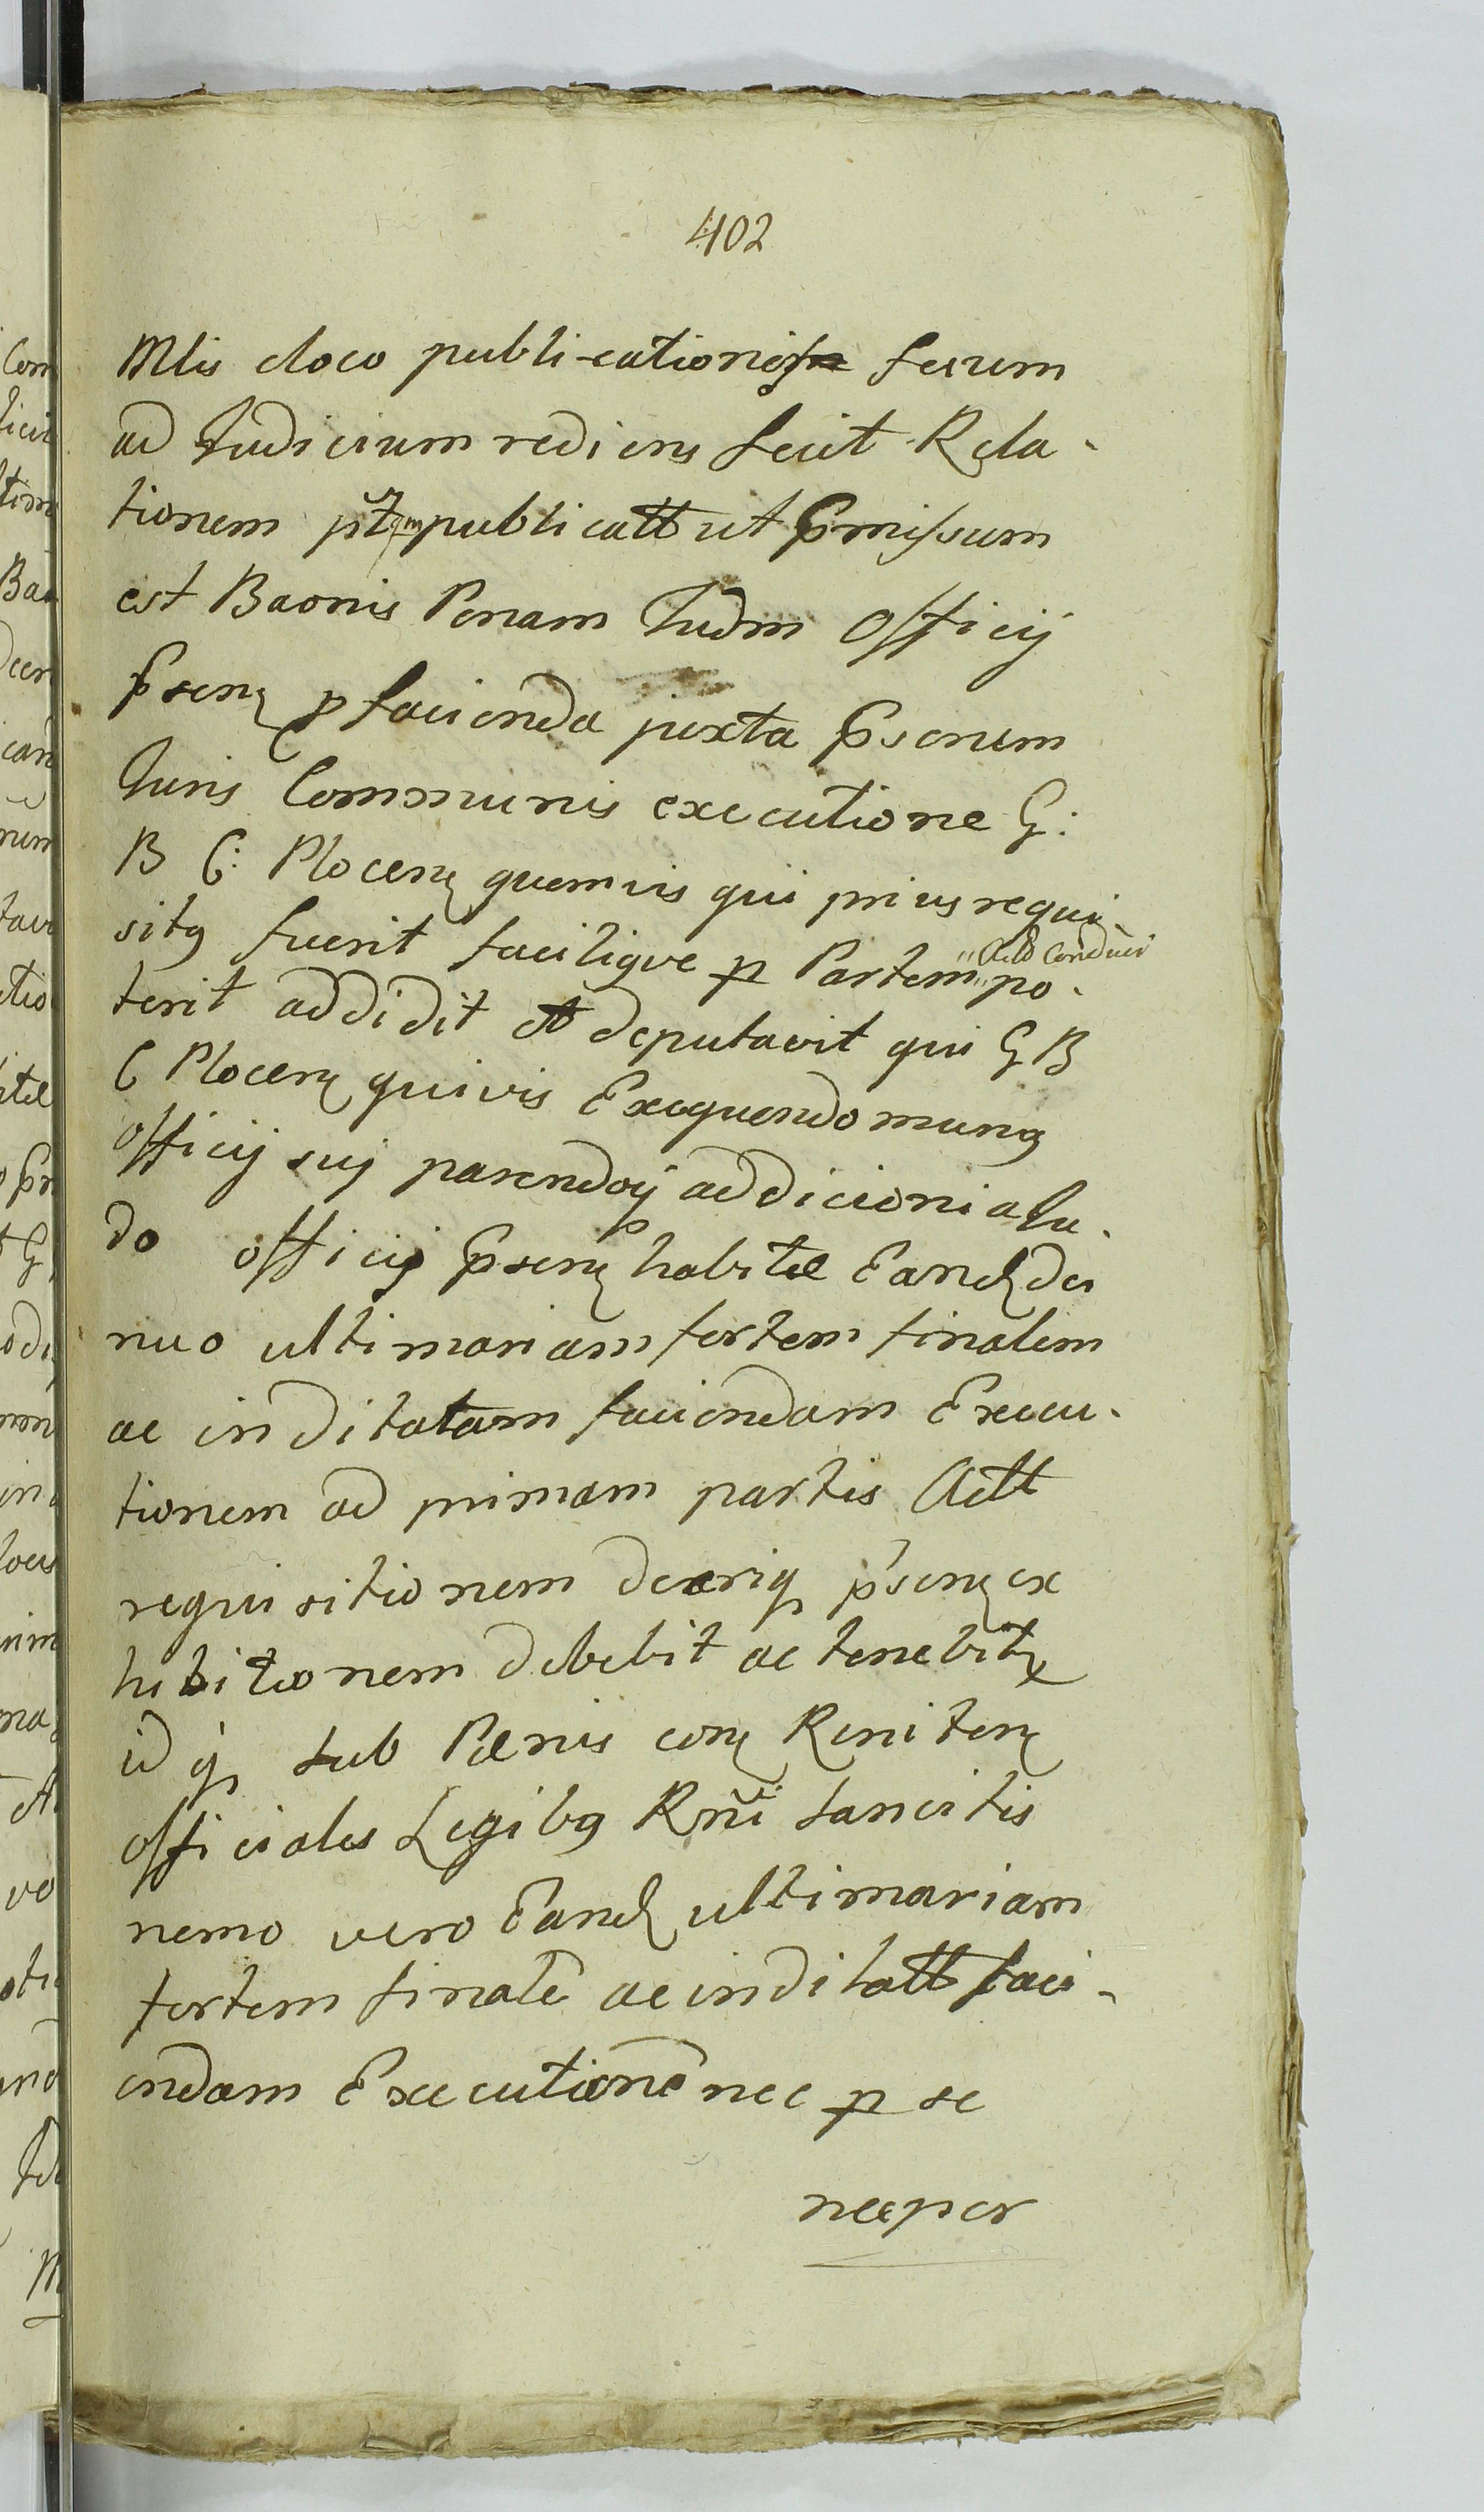 402
Mlis eloco publi-cationis secum
ad Judicium rediens fecit Rela-
tionem pt publicatt ut Pmissum
est Baonis Penam Judm Officij
Psenz p facienda juxta Psenem
Juris Communis executione G:
B C: Plocenz quemvis qui prius requi-
sitq fuerit faciliqve p Partem "Actt Conduci" po-
terit addidit et deputavit qui G B
C Plocenz quivis Exequendo munq
Officij suj parendoq addicioni a Ju-
do officij Psenz habitæ Eandz de
nuo ultimariam fortem finalem
ac inditatam faciendam Execu-
tionem ad primam partis Actt
requisitionem decrq psenz ex
hibitionem debebit ac tenebitz
id q sub Pænis conz Renitenz
officiales Legibq Rni sancitis
nemo vero Eandz ultimariam
fortem finalē ac inditatt faci-
endam Executionē nec p se
nec per